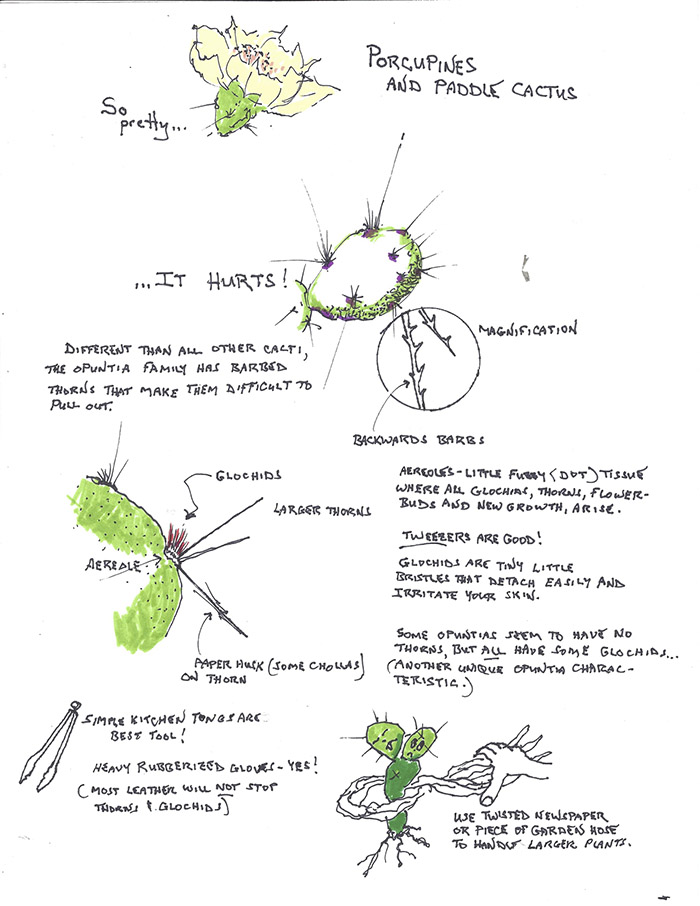 PORCUPINES
AND PADDLE CACTUS
So
pretty...
...IT HURTS!
MAGNIFICATION
DIFFERENT THAN ALL OTHER CACTI,
THE OPUNTIA FAMILY HAS BARBED
THORNS THAT MAKE THEM DIFFICULT TO
PULL OUT.
BACKWARDS BARBS
AEREOLES - LITTLE FUZZY (DOT) TISSUE
WHERE ALL GLOCHIDS, THORNS, FLOWER-
BUDS AND NEW GROWTH, ARISE.
GLOCHIDS
LARGER THORNS
TWEEZERS ARE GOOD!
AEREOLE
GLOCHIDS ARE TINY LITTLE
BRISTLES THAT DETACH EASILY AND
IRRITATE YOUR SKIN.
PAPER HUSK (SOME CHOLLAS)
ON THORN
SOME OPUNTIAS SEEM TO HAVE NO
THORNS, BUT ALL HAVE SOME GLOCHIDS...
(ANOTHER UNIQUE OPUNTIA CHARAC-
TERISTIC.)
SIMPLE KITCHEN TONGS ARE
BEST TOOL!
HEAVY RUBBERIZED GLOVES - YES!
(MOST LEATHER WILL NOT STOP
THORNS & GLOCHIDS)
USE TWISTED NEWSPAPER
OR PIECE OF GARDEN HOSE
TO HANDLE LARGER PLANTS.